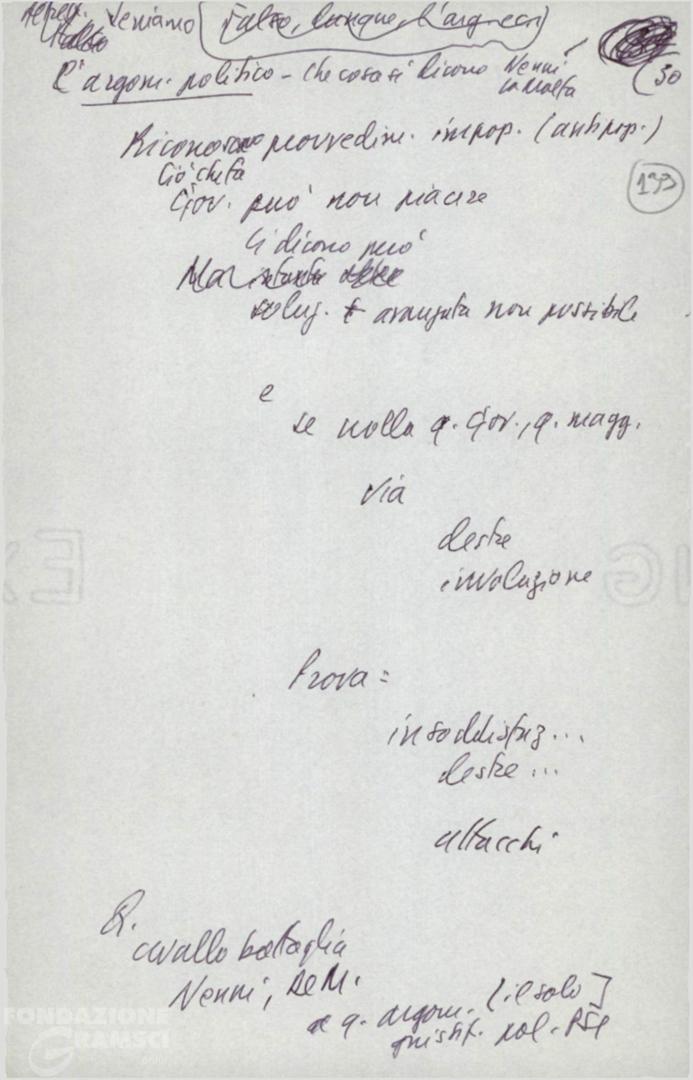 Veniamo (Falso, dunque, l'argom. ec.)
L'argom. politico - Che cosa si dicono Nenni
La Malfa
(30
Riconoscono provvedim. impop. (antipop.)
133
Ciò che fa
Gov. può non piacere
Ci dicono però
Ma
soluz. + avanzata non possibile
e
se crolla q. Gov., q. magg.
via
destre
involuzione
Prova =
insoddisfaz...
destre...
attacchi
Q.
cavallo battaglia
Nenni, De M.
q. argom. [il solo]
giustif. pol. PSI
FONDAZIONE
GRAMSCI